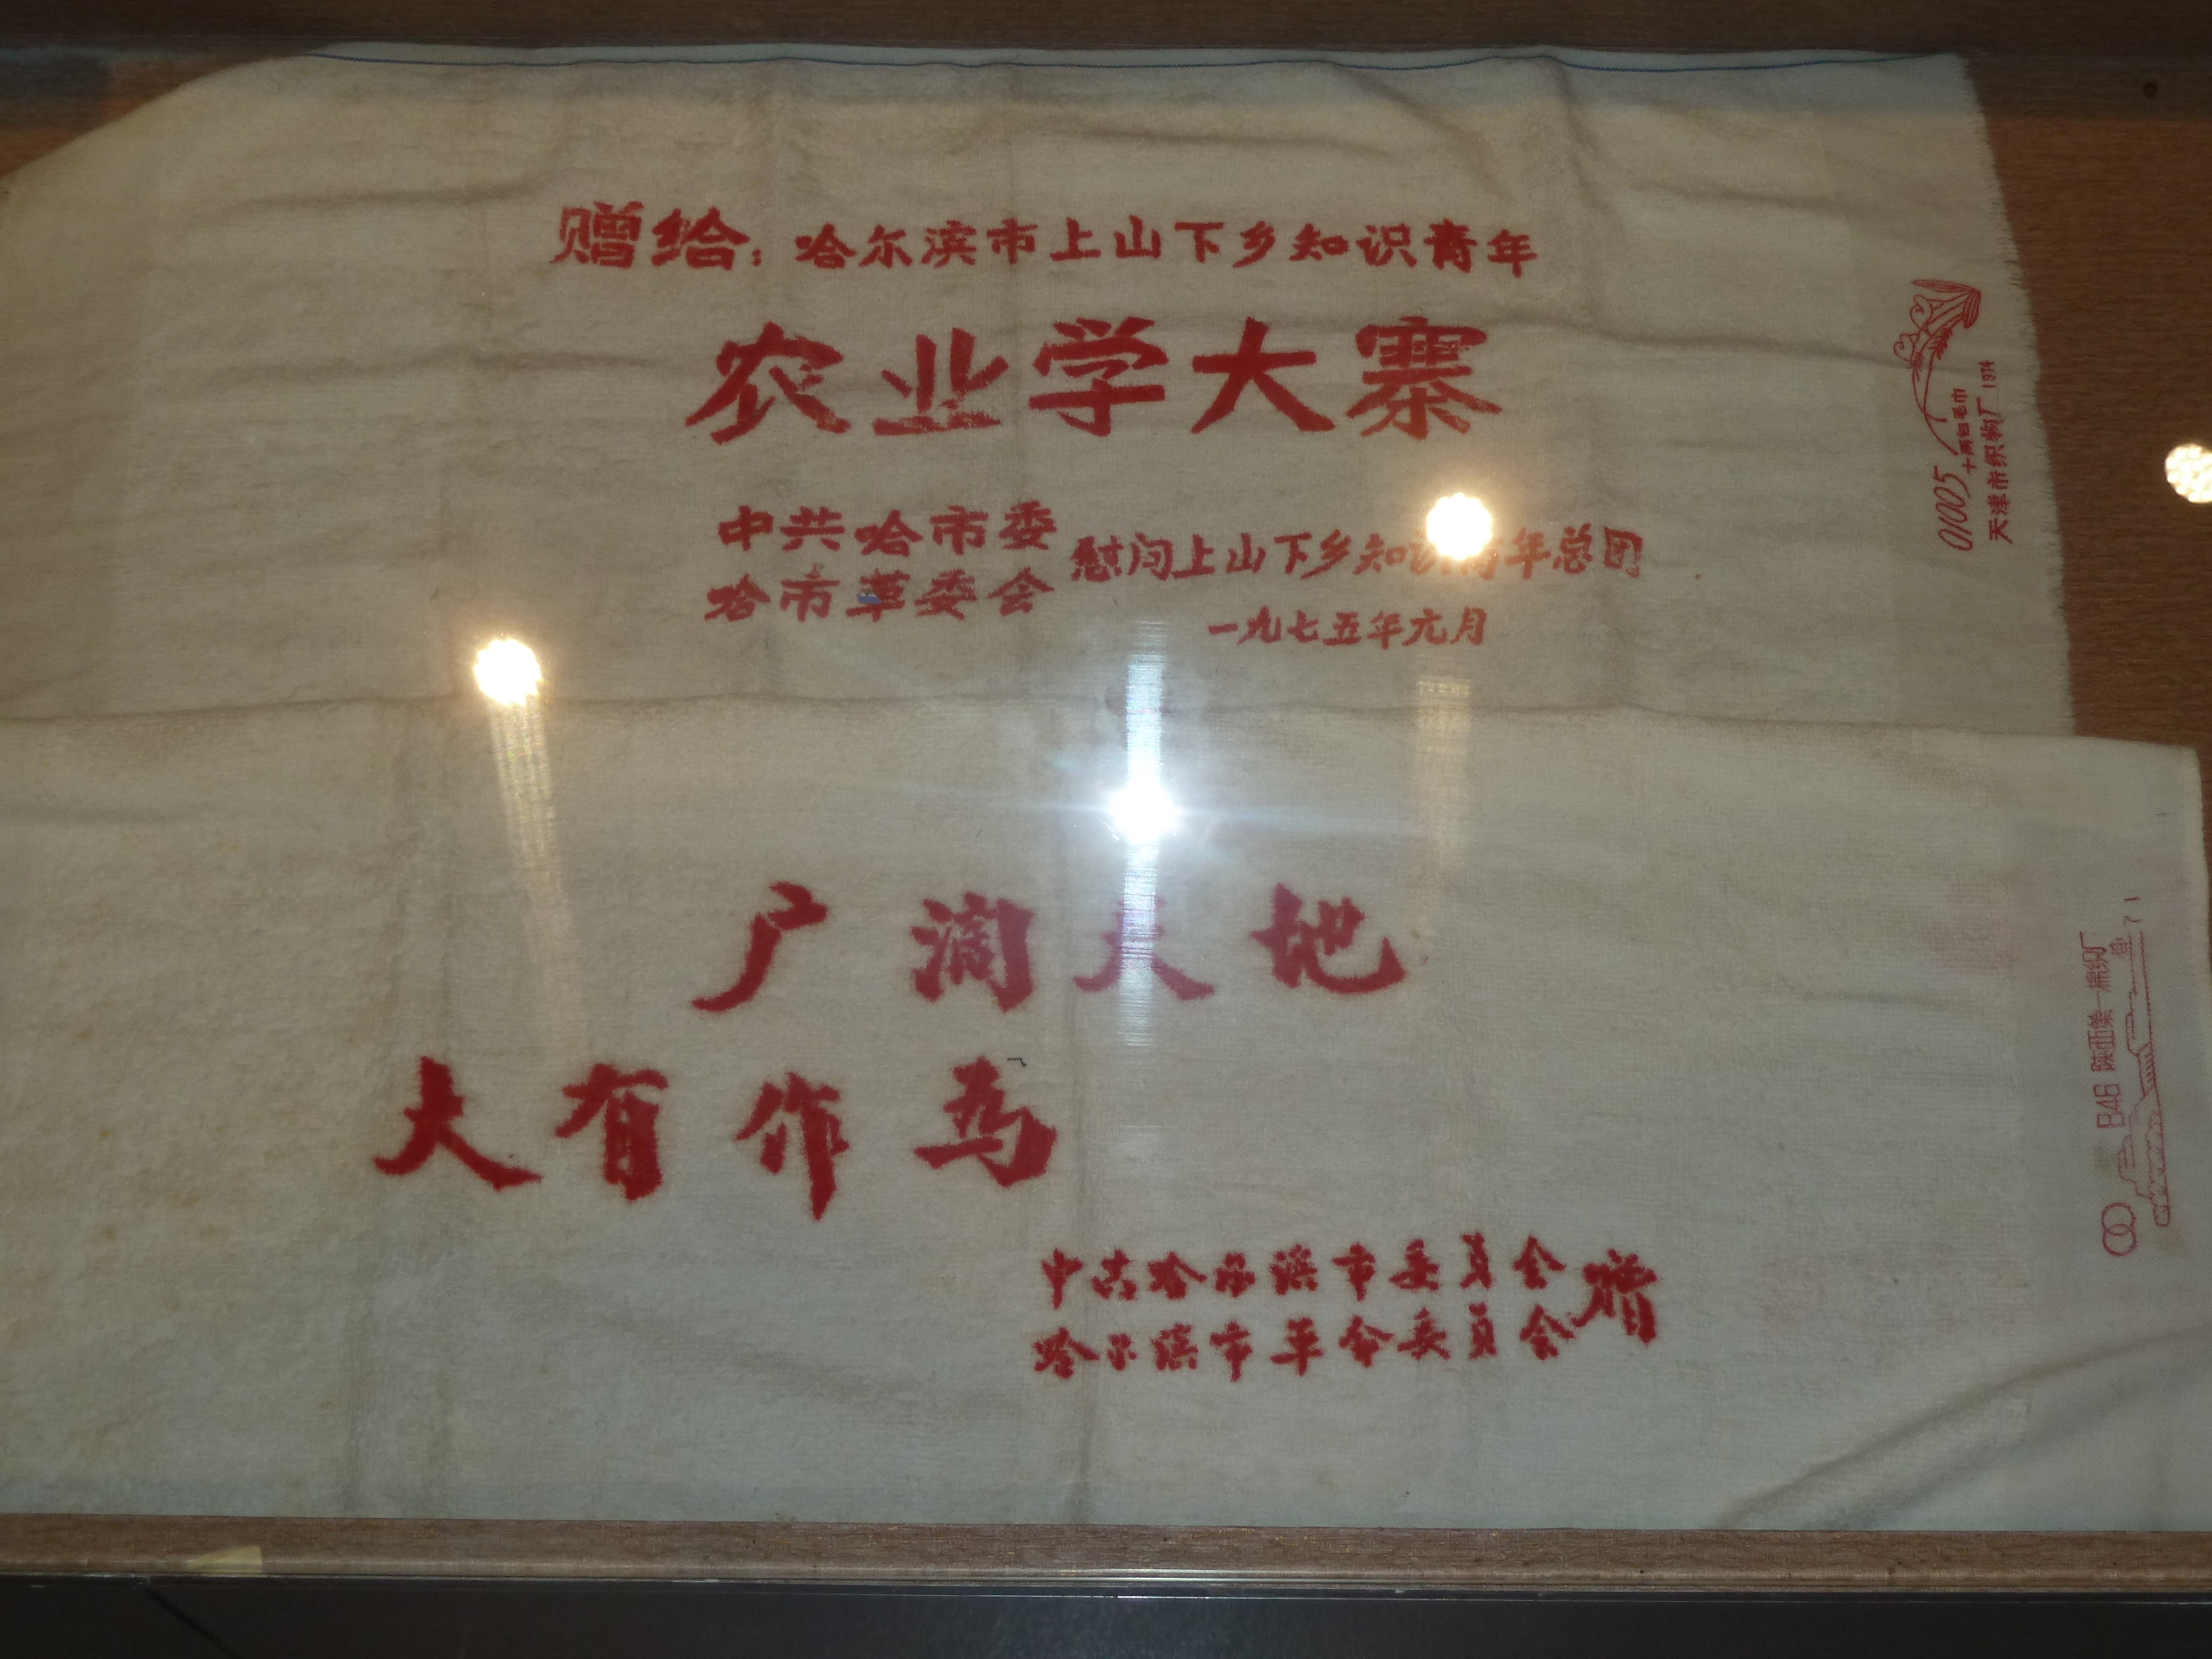 赠给：哈尔滨市上山下乡知识青年
农业学大寨
中共哈市委
哈市革委会
慰问上山下乡知识青年总团
一九七五年元月
01005
十两白毛巾
天津市织物厂 1974
广阔天地
大有作为
中共哈尔滨市委员会
哈尔滨市革命委员会
赠
B46 陕西第一棉织厂
71